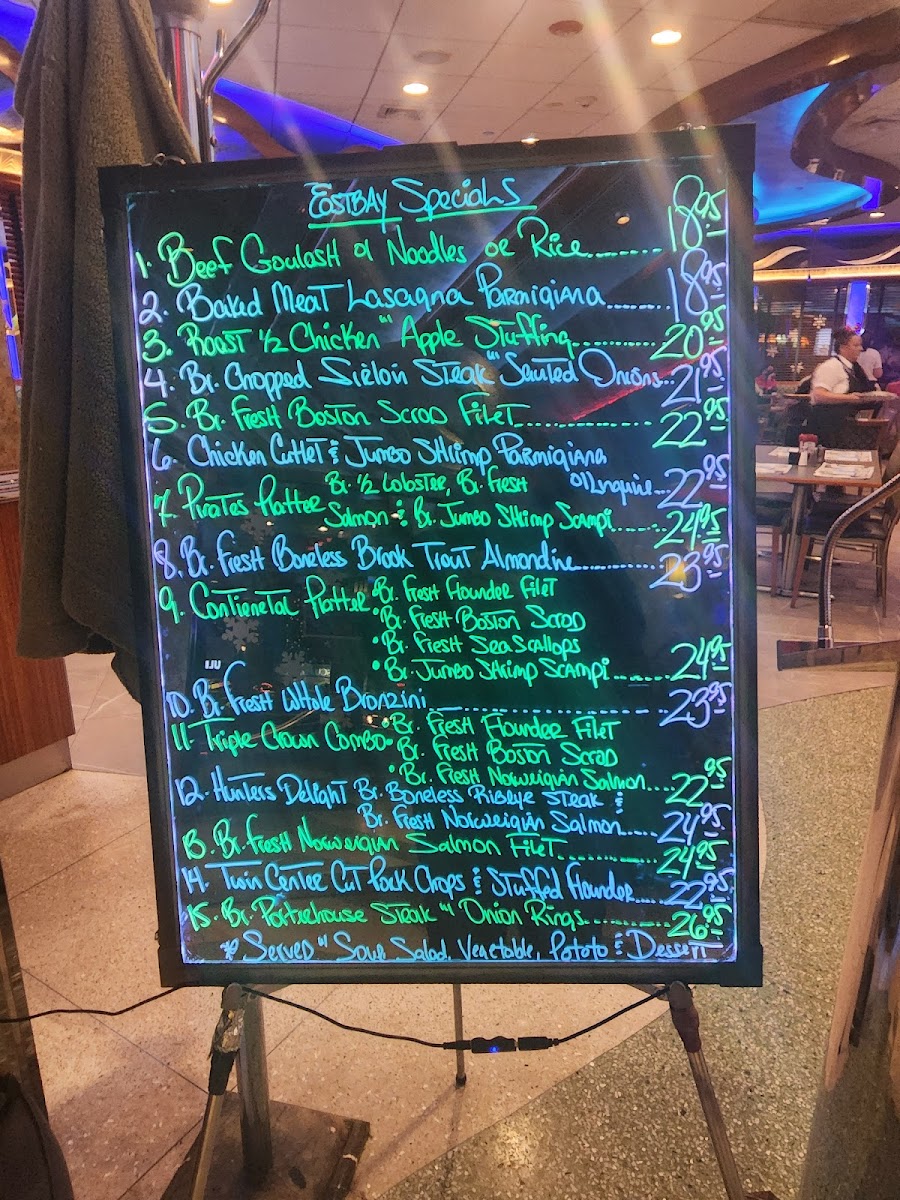 EastBay Specials
1. Beef Goulash o/ Noodles or Rice........ 18.95
2. Baked Meat Lasagna Parmigiana....... 18.95
3. Roast 1/2 Chicken w/ Apple Stuffing.......... 20.95
4. Br. Chopped Sirloin Steak w/ Sauted Onions... 21.95
5. Br. Fresh Boston Scrod Filet............... 22.95
6. Chicken Cutlet & Jumbo Shrimp Parmigiana
o/Linguine... 22.95
7. Pirates Platter Br. 1/2 Lobster, Br. Fresh
Salmon & Br. Jumbo Shrimp Scampi....... 24.95
8. Br. Fresh Boneless Brook Trout Almondine......... 23.95
9. Contienetal Platter • Br. Fresh Flounder Filet
• Br. Fresh Boston Scrod
• Br. Fresh Sea Scallops
• Br. Jumbo Shrimp Scampi....... 24.95
10. Br. Fresh Whole Bronzini................ 23.95
11. Triple Crown Combo • Br. Fresh Flounder Filet
• Br. Fresh Boston Scrod
• Br. Fresh Norweigian Salmon.... 22.95
12. Hunters Delight Br. Boneless Ribeye Steak &
Br. Fresh Norweigian Salmon..... 24.95
13. Br. Fresh Norweigian Salmon Filet........... 24.95
14. Twin Center Cut Pork Chops & Stuffed Flounder... 22.95
15. Br. Porterhouse Steak w/ Onion Rings......... 26.95
* Served w/ Soup, Salad, Vegetable, Pototo & Dessert